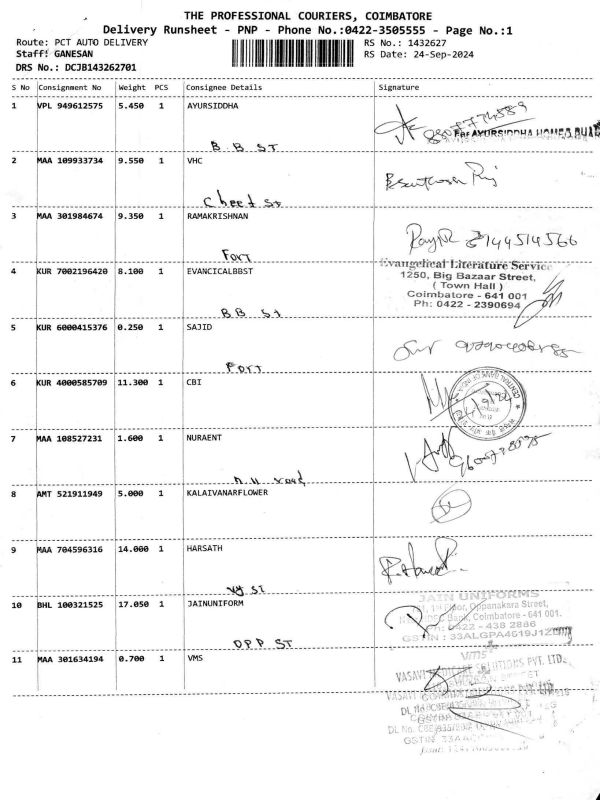 THE PROFESSIONAL COURIERS, COIMBATORE
Delivery Runsheet - PNP - Phone No.:0422-3505555 - Page No.:1
Route: PCT AUTO DELIVERY RS No.: 1432627
Staff: GANESAN RS Date: 24-Sep-2024
DRS No.: DCJB143262701
S No Consignment No Weight PCS Consignee Details Signature
1 VPL 949612575 5.450 1 AYURSIDDHA
8807774589
For AYURSIDDHA
B.B ST
2 MAA 109933734 9.550 1 VHC
3 MAA 301984674 9.350 1 RAMAKRISHNAN
8144514566
Fort
4 KUR 7002196420 8.100 1 EVANCICALBBST
Evangelical Literature Service
1250, Big Bazaar Street,
( Town Hall )
Coimbatore - 641 001
Ph: 0422 - 2390694
B B St
5 KUR 6000415376 0.250 1 SAJID
Fort
6 KUR 4000585709 11.300 1 CBI
CENTRAL BANK OF INDIA
7 MAA 108527231 1.600 1 NURAENT
8 AMT 521911949 5.000 1 KALAIVANARFLOWER
9 MAA 704596316 14.000 1 HARSATH
VY St
10 BHL 100321525 17.050 1 JAINUNIFORM
JAIN UNIFORMS
Floor, Oppanakara Street,
Bank, Coimbatore - 641 001.
Ph: 0422 - 438 2886
GSTIN : 33ALGPA4619J1Z
OPP ST
11 MAA 301634194 0.700 1 VMS
VMS
VASAVI SOLUTIONS PVT. LTD.